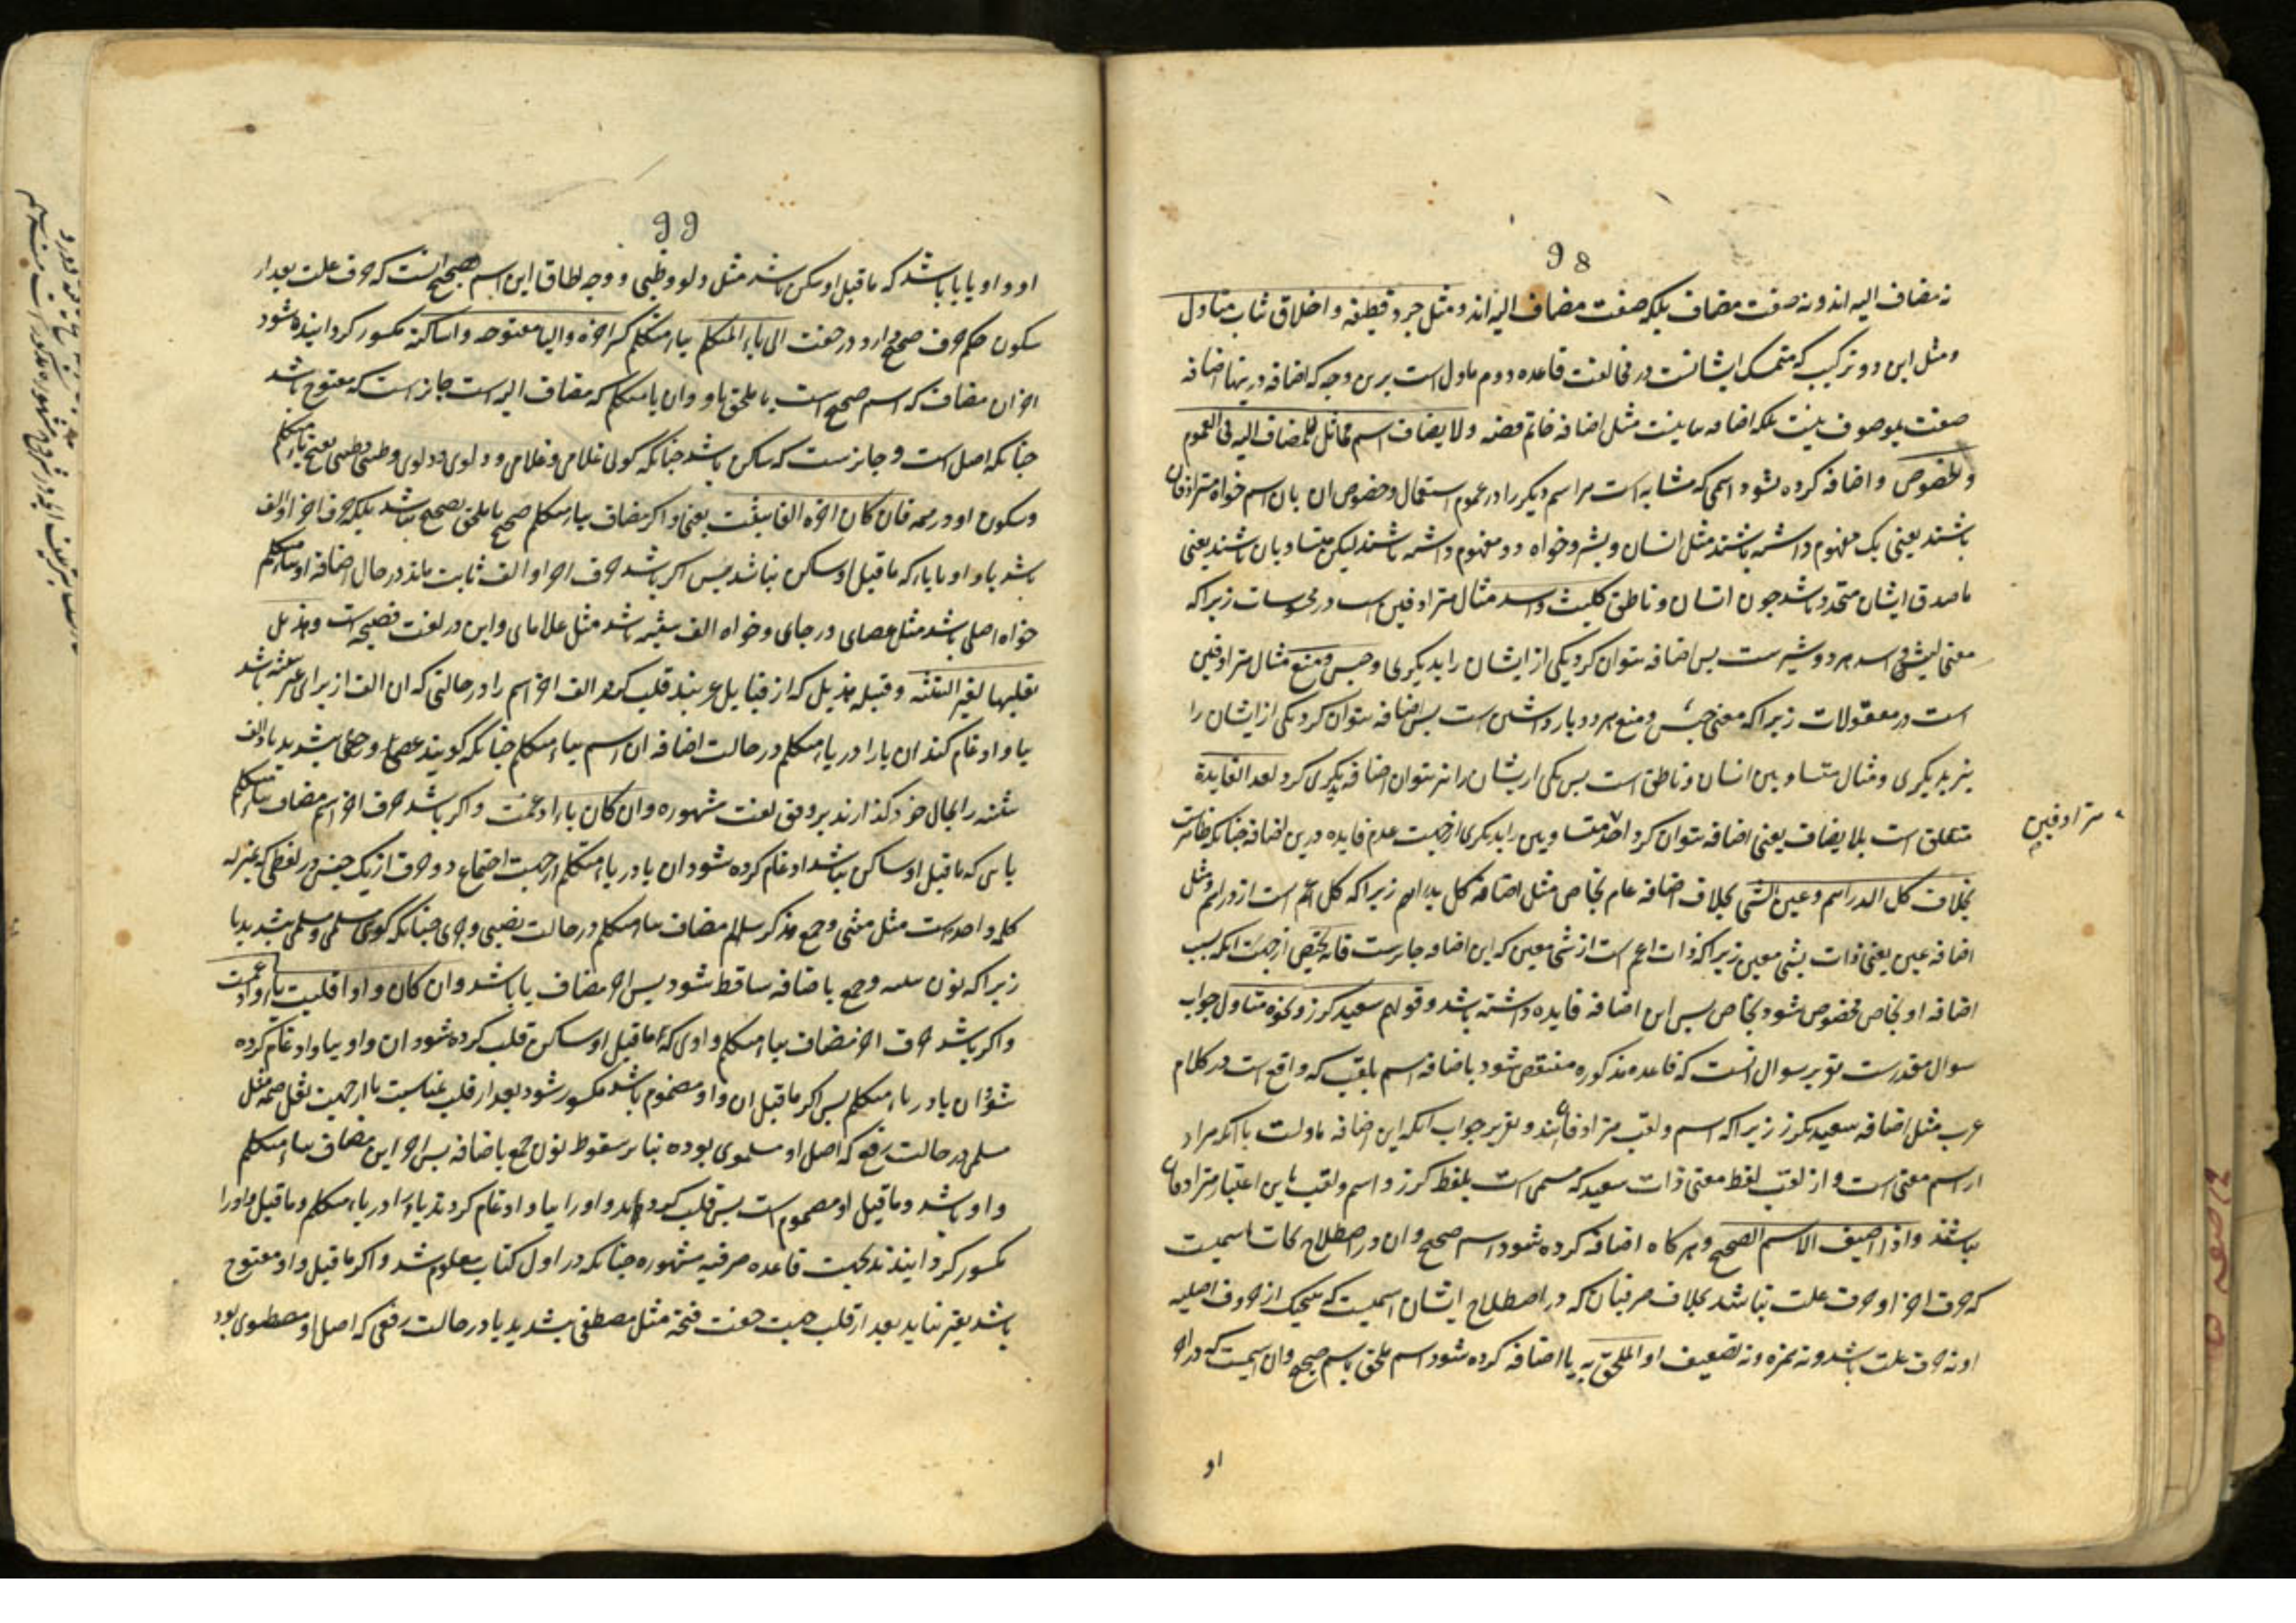 98
نه مضاف الیه اند و نه صفت مضاف بلکه صفت مضاف الیه اند و مثل جرد قطیفة و اخلاق ثیاب متاول
و مثل این دو ترکیب که متمسک ایشانست در مخالفت قاعده دوم ماول است برین وجه که اضافه درینها اضافه
صفت بموصوف نیست بلکه اضافه بیانیست مثل اضافه خاتم فضه ولا یضاف اسم مماثل للمضاف الیه فی العموم
والخصوص و اضافه کرده نشود اسمی که مشابه است مر اسم دیگر را در عموم استعمال و خصوص ان بان اسم خواه مترادفان
باشند یعنی یک مفهوم داشته باشند مثل انسان و بشر و خواه دو مفهوم داشته باشند لیکن متساویان باشند یعنی
ماصدق ایشان متحد باشد چون انسان و ناطق کلیث و اسد مثال مترادفین است در محسوسات زیرا که
معنی لیث و اسد هر دو شیرست پس اضافه نتوان کرد یکی از ایشان را بدیگری و حبس و منع مثال مترادفین
است در معقولات زیرا که معنی حبس و منع هر دو بازداشتن است پس اضافه نتوان کرد یکی از ایشان را
نیز بدیگری و مثال متساویین انسان و ناطق است پس یکی از ایشان را نیز نتوان اضافه بدیگری کرد لعدم الفایدة
متعلق است بلا یضاف یعنی اضافه نتوان کرد احد متساویین را بدیگری از جهت عدم فایده درین اضافه چنانکه ظاهرست
مترادفین
بخلاف کل الدراهم و عین الشی بخلاف اضافه عام بخاص مثل اضافه کل بدراهم زیرا که کل اعم است از دراهم و مثل
اضافه عین یعنی ذات بشی معین زیرا که ذات اعم است از شی معین که این اضافه جایزست فانه یختص از جهت انکه بسبب
اضافه او بخاص مخصوص شود بخاص پس این اضافه فایده داشته باشد و قولهم سعید کرز و نحوه متاول جواب
سوال مقدرست تقریر سوال انست که قاعده مذکوره منتقض شود باضافه اسم بلقب که واقع است در کلام
عرب مثل اضافه سعید بکرز زیرا که اسم و لقب مترادفانند و تقریر جواب انکه این اضافه ماولست بانکه مراد
از اسم معنی است و از لقب لفظ معنی ذات سعید که مسمی است بلفظ کرز و اسم و لقب باین اعتبار مترادفان
نباشند واذا اضیف الاسم الصحیح و هر کاه اضافه کرده شود اسم صحیح و ان در اصطلاح نحات اسمیست
که حرف اخر او حرف علت نباشد بخلاف صرفیان که در اصطلاح ایشان اسمیست که هیچیک از حروف اصلیه
او نه حرف علت باشد و نه همزه و نه تضعیف او الملحق به یا اضافه کرده شود اسم ملحق باسم صحیح و ان اسمیست که در اخر
او
99
او واو یا یا باشد که ماقبل او ساکن باشد مثل دلو و ظبی و وجه الحاق این اسم بصحیح انست که حرف علت بعد از
سکون حکم حرف صحیح دارد در خفت الی یاء المتکلم بیاء متکلم کسر اخره والیاء مفتوحه او ساکنة مکسور کردانیده شود
اخر ان مضاف که اسم صحیح است یا ملحق باو و ان یاء متکلم که مضاف الیه است جایز است که مفتوح باشد
چنانکه اصل است و جایزست که ساکن باشد چنانکه کوئی غلامی و غلامی و دلوی و دلوی و ظبیی و ظبیی بفتح یاء متکلم
و سکون او در همه فان کان اخره الفا یثبت یعنی و اکر مضاف بیاء متکلم صحیح یا ملحق بصحیح نباشد بلکه حرف اخر او الف
باشد یا واو یا یاء که ماقبل او ساکن نباشد پس اکر باشد حرف اخر او الف ثابت ماند در حال اضافه او بیاء متکلم
خواه اصلی باشد مثل عصای و رحای و خواه الف تثنیه باشد مثل غلامای و این در لغت فصیحه است و هذیل
تقلبها لغیر التثنیه و قبیله هذیل که از قبایل عربند قلب کنند الف اخر اسم را در حالتی که ان الف از برای غیر تثنیه باشد
بیا و ادغام کنند ان یا را در یاء متکلم در حالت اضافه ان اسم بیاء متکلم چنانکه کویند عصی و رحی بتشدید یا و الف
تثنیه را بحال خود کذارند بر وفق لغت مشهوره وان کان یاء ادغمت و اکر باشد حرف اخر اسم مضاف بیاء متکلم
یایی که ماقبل او ساکن نباشد ادغام کرده شود ان یا در یاء متکلم از جهت اجتماع دو حرف از یک جنس در لفظی که بمنزله
کلمه واحده است مثل مثنی و جمع مذکر سالم مضاف بیاء متکلم در حالت نصبی و جری چنانکه کوئی مسلمی و مسلمی بتشدید یا
زیرا که نون تثنیه و جمع باضافه ساقط شود پس اخر مضاف یا باشد وان کان واوا قلبت یاء و ادغمت
و اکر باشد حرف اخر مضاف بیاء متکلم واوی که ماقبل او ساکن قلب کرده شود ان واو بیا و ادغام کرده
شود ان یا در یاء متکلم پس اکر ماقبل ان واو مضموم باشد مکسور شود بعد از قلب بمناسبت یا از جهت ثقل ضمه مثل
مسلمی در حالت رفع که اصل او مسلموی بوده بنا بر سقوط نون جمع باضافه پس اخر این مضاف بیاء متکلم
واو باشد و ماقبل او مضموم است پس قلب کردند واو را بیا و ادغام کردند یاء را در یاء متکلم و ماقبل او را
مکسور کردانیدند بجهت قاعده صرفیه مشهوره چنانکه در اول کتاب معلوم شد و اکر ماقبل واو مفتوح
باشد تغیر نیابد بعد از قلب جهت خفت فتحه مثل مصطفی بتشدید یا در حالت رفعی که اصل او مصطفوی بود